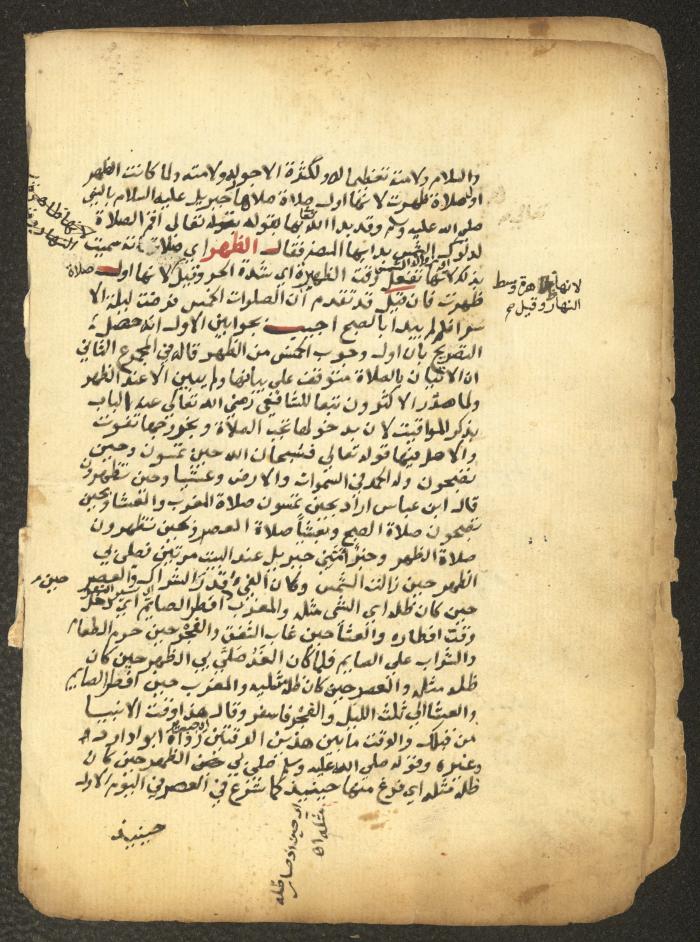 والسلام ولامته تعظيما له ولكثرة الاحوله ولامته ولما كانت الظهر
اول صلاة ظهرت لانها اول صلاة صلاها جبريل عليه السلام بالنبي
صلى الله عليه وسلم وقد بدا الله تعالى بها بقوله تعالى اقم الصلاة
لدلوك الشمس بدا بها المصنف فقال الظهر اي صلاته سميت
بذلك لانها تفعل وقت الظهيرة اي شدة الحر وقيل لانها اول صلاة
ظهرت فان قيل قد تقدم ان الصلوات الخمس فرضت ليلة الا
سرا فلم يبدا بالصبح اجيب بجوابين الاول انه حصل
التصريح بان اول وجوب الخمس من الظهر قاله في المجموع الثاني
ان الاتيان بالصلاة متوقف على بيانها ولم يبين الا عند الظهر
ولما صدر الاكثرون تبعا للشافعي رضي الله تعالى عنه الباب
بذكر المواقيت لان بدخولها تجب الصلاة وبخروجها تفوت
والاصل فيها قوله تعالى فسبحان الله حين تمسون وحين
تصبحون وله الحمد في السموات والارض وعشيا وحين تظهرون
قال ابن عباس اراد بحين تمسون صلاة المغرب والعشا وبحين
تصبحون صلاة الصبح وبعشيا صلاة العصر وبحين تظهرون
صلاة الظهر وخبر امني جبريل عند البيت مرتين فصلى بي
الظهر حين زالت الشمس وكان الفيء قدر الشراك والعصر
حين كان ظله اي الشي مثله والمغرب حين افطر الصايم اي دخل
وقت افطاره والعشا حين غاب الشفق والفجر حين حرم الطعام
والشراب على الصايم فلما كان الغد صلى بي الظهر حين كان
ظله مثله والعصر حين كان ظله مثليه والمغرب حين افطر الصايم
والعشا الى ثلث الليل والفجر فاسفر وقال هذا وقت الانبيا
من قبلك والوقت ما بين هذين الوقتين رواه ابو داود
وغيره وقوله صلى الله عليه وسلم صلى بي الظهر حين كان
ظله مثله اي فرغ منها حينيذ كما شرع في العصر في اليوم الاول
حينيذ
وسط
النهار وقيل
حين
مثله اي
اي حين صار ظله